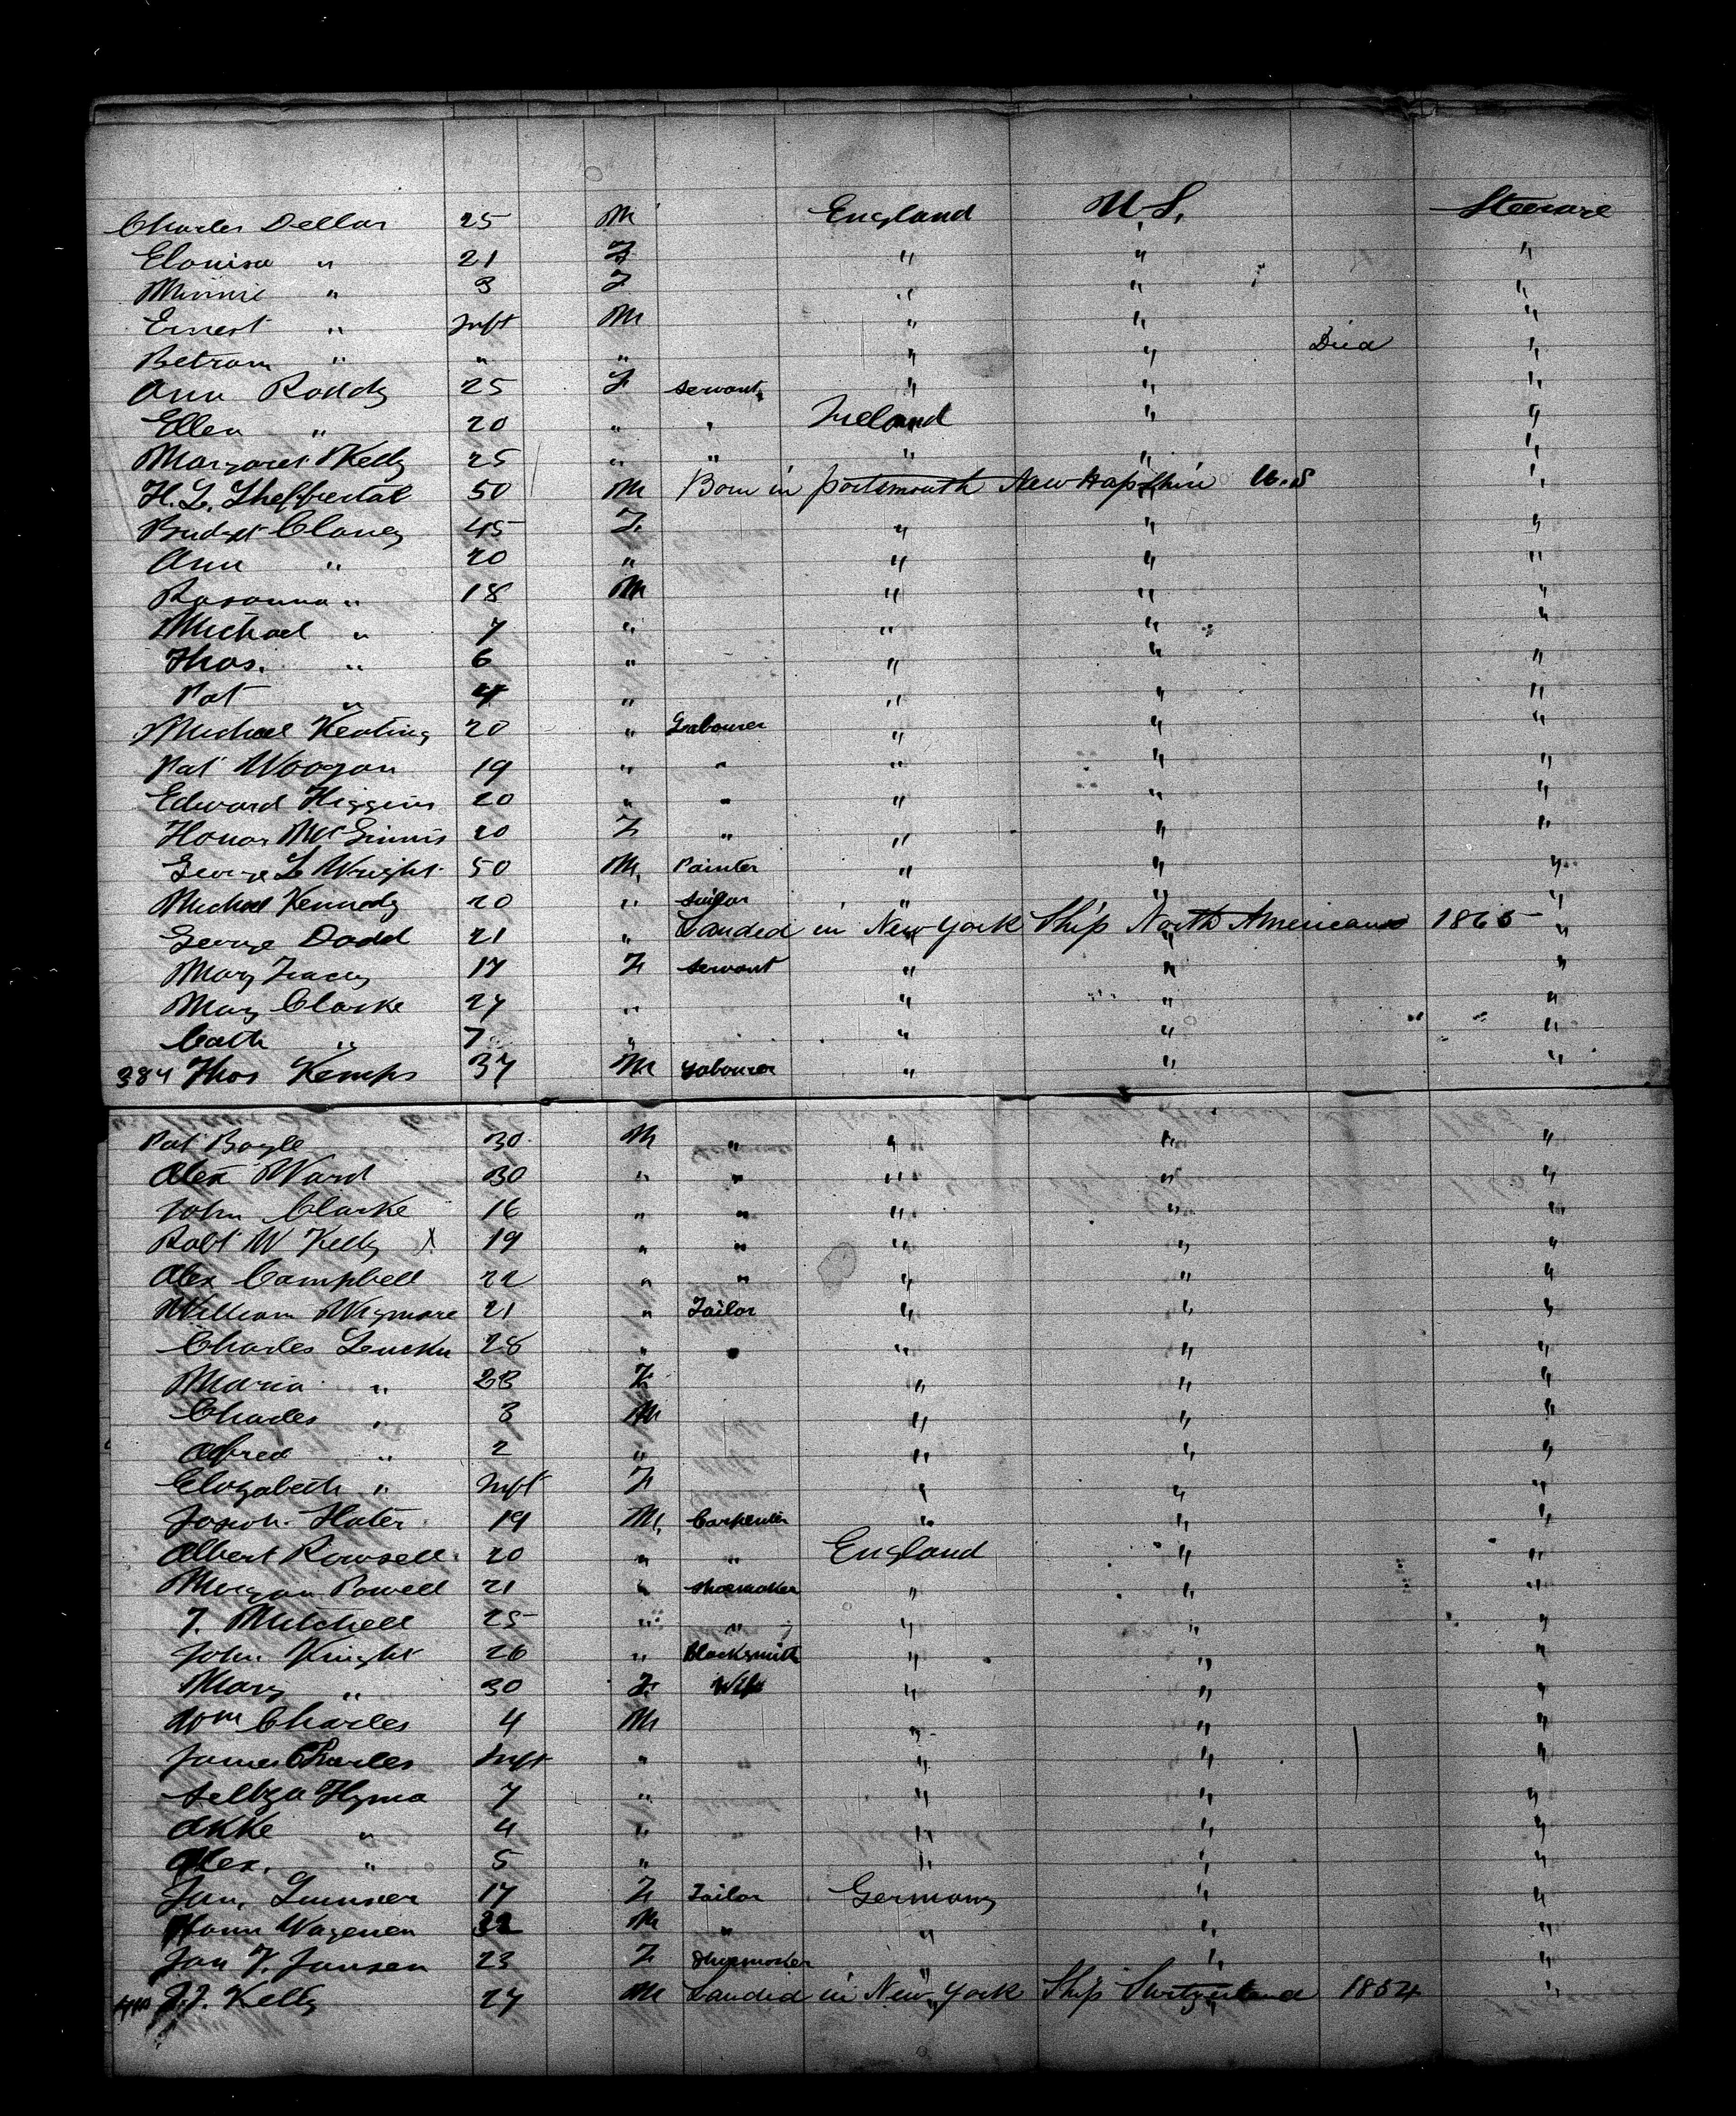 Charles Dellar 25 M England U.S. Steerage
Elouisa " 21 F " " "
Minnie " 3 F " " "
Ernest " Inft M " " "
Betram " " " " " Died "
Ann Roddy 25 F servant " " "
Ellen " 20 " " Ireland " "
Margaret Kelly 25 " " " " "
H. L. 50 M Born in Portsmouth New Hapshire U.S "
Bridget Clancy 45 F " " "
Ann " 20 " " " "
Rosanna " 18 M " " "
Michael " 7 " " " "
Thos. " 6 " " " "
Pat " 4 " " " "
Michael Keating 20 " Labourer " " "
Pat Woogan 19 " " " " "
Edward Higgins 20 " " " " "
Honor McGinnis 20 F " " " "
George L Wright 50 M Painter " " "
Michael Kennedy 20 " " " "
George Dodd 21 " Landed in New York Ship North American 1865 "
Mary Tracey 17 F servant " " "
Mary Clarke 27 " " " "
Cath " 7 " " " "
384 Thos Kemps 37 M Labourer " " "
Pat Boyle 30 M " " " "
Alex Ward 30 " " " " "
John Clarke 16 " " " " "
Robt W Kelly X 19 " " " " "
Alex Campbell 22 " " " " "
William Wigmore 21 " Tailor " " "
Charles 28 " " " " "
Maria " 28 F " " "
Charles " 3 M " " "
Alfred " 2 " " " "
Elizabeth " Inft F " " "
Joseph Hater 19 M Carpenter " " "
Albert Rowsell 20 " " England " "
Morgan Powell 21 " shoemaker " " "
T. Mitchell 25 " " " " "
John Knight 26 " Blacksmith " " "
Mary " 30 F Wife " " "
Wm Charles 4 M " " "
James Charles Inft " " " "
Hyma 7 " " " "
Akke " 4 " " " "
Alex. " 5 " " " "
Jan, 17 F Tailor Germany " "
Wagenen 32 M " " " "
Jan F. Jansen 23 F Shoemaker " " "
J.J. Kelly 27 M Landed in New York Ship Switzerland 1854 "